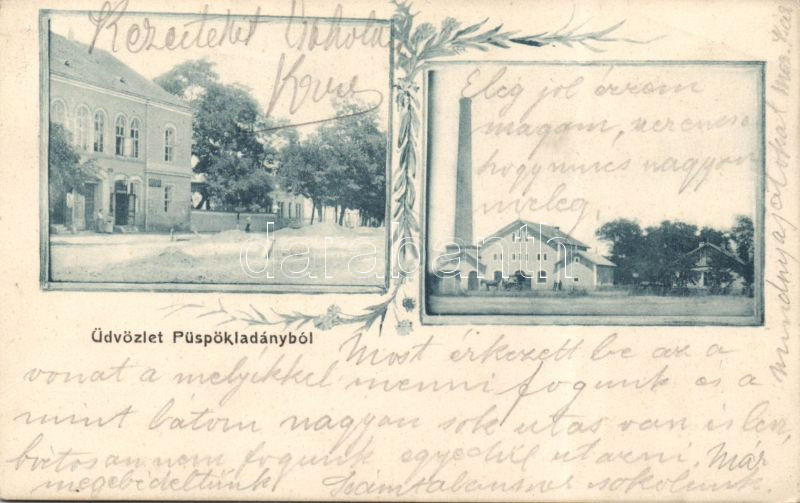 Kezeiteket
Eleg jol érzem
magam, szerencse
hogy nincs nagyon
meleg,
darabanth.com
Üdvözlet Püspökladányból
Most érkezett be az a
vonat a melyikkel menni fogunk és a
mint látom nagyon sok utas van is
biztosan nem fogunk egyedül utazni, Már
megebédeltünk. Számtalanszor csókolunk
mindnyájatokat